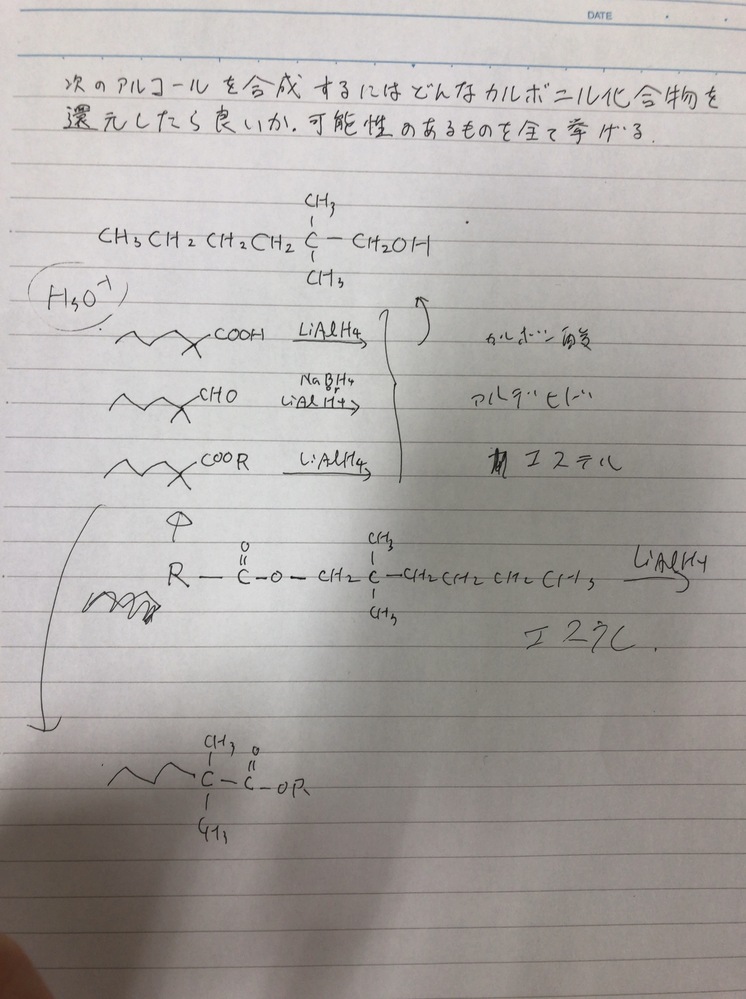 DATE
次のアルコールを合成するにはどんなカルボニル化合物を
還元したら良いか.可能性のあるものを全て挙げる.
CH3
CH3CH2CH2CH2 C - CH2OH
CH3
H3O+
COOH LiAlH4 カルボン酸
CHO NaBH4 or LiAlH4 アルデヒド
COOR LiAlH4 エステル
O CH3
R - C - O - CH2 C - CH2CH2CH2CH3 LiAlH4
CH3
エステル.
CH3 O
C - C - OR
CH3